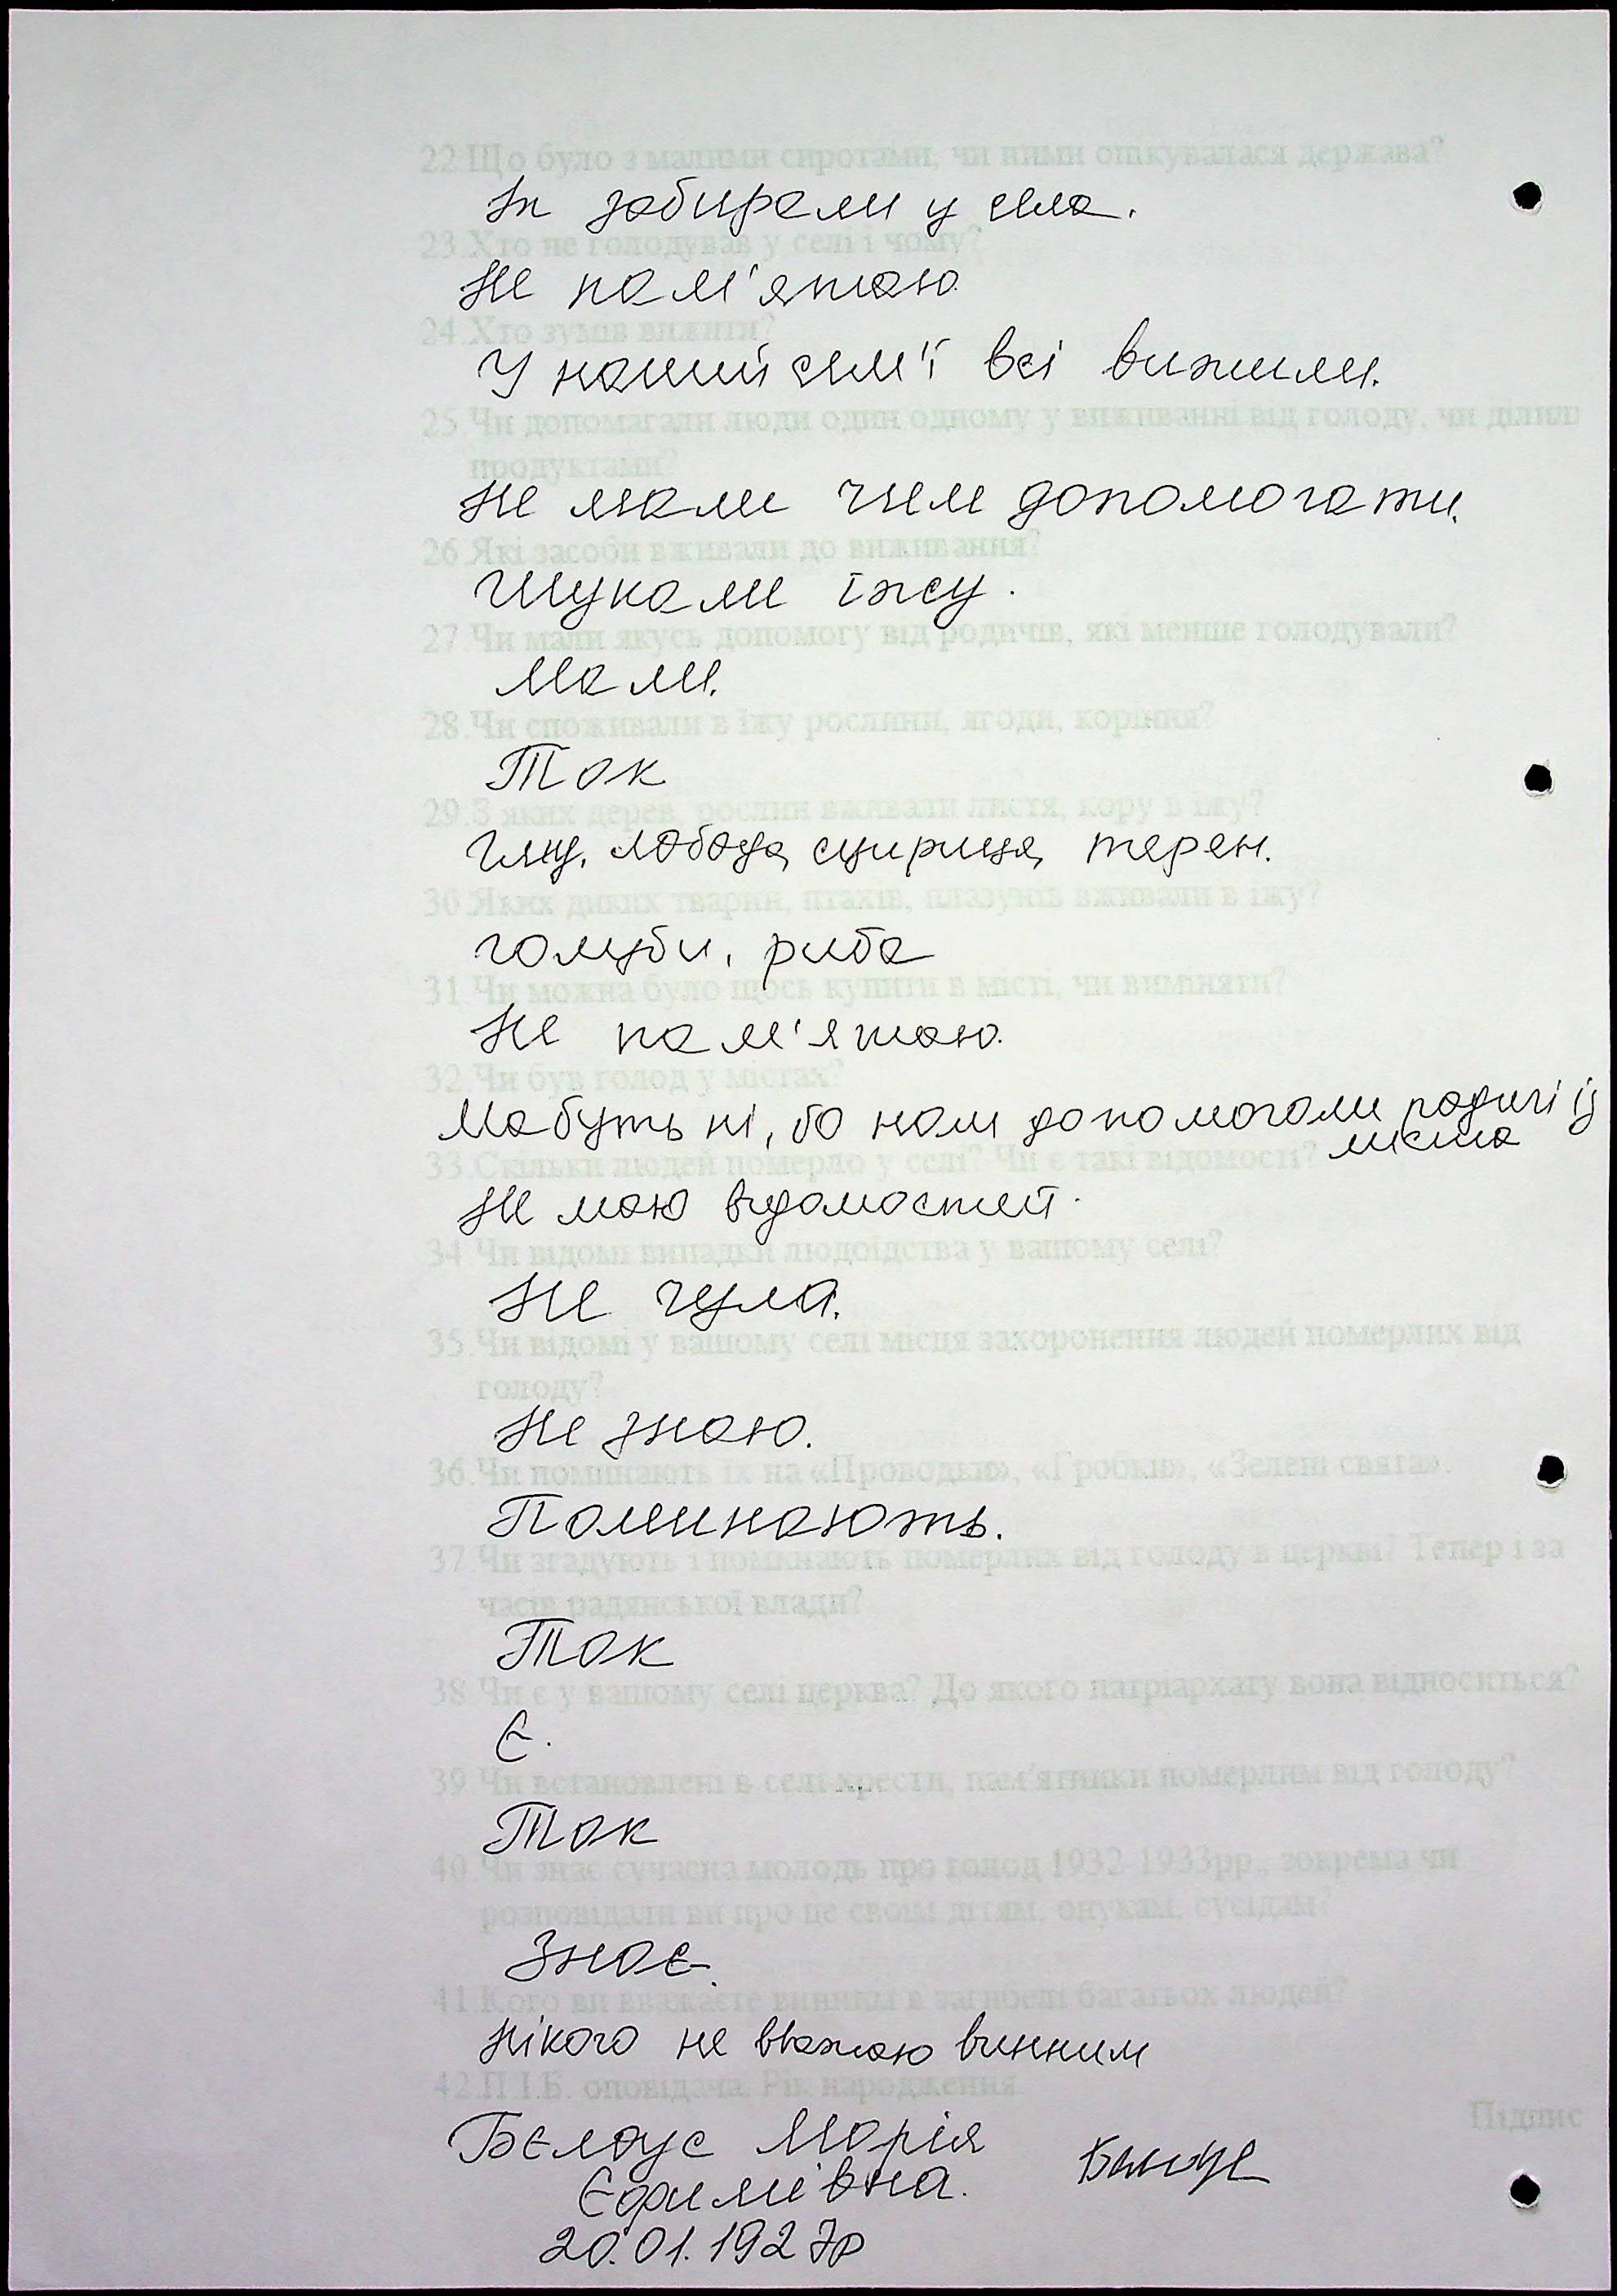 22.Що було з малими сиротами, чи ними опікувалася держава?
Їх забирали у села.
23.Хто не голодував у селі і чому?
Не пам'ятаю.
24.Хто зумів вижити?
У нашій сім'ї всі вижили.
25.Чи допомагали люди один одному у виживанні від голоду, чи ділили
продуктами?
Не мали чим допомогати.
26.Які засоби вживали до виживання?
Шукали їжу.
27.Чи мали якусь допомогу від родичів, які менше голодували?
Мали.
28.Чи споживали в їжу рослини, ягоди, коріння?
Так
29.З яких дерев, рослин вживали листя, кору в їжу?
лобода, щириця, терен.
30.Яких диких тварин, птахів, плазунів вживали в їжу?
голуби, риба
31.Чи можна було щось купити в місті, чи виміняти?
Не пам'ятаю.
32.Чи був голод у містах?
Мабуть ні, бо нам допомогали родичі із
міста
33.Скільки людей померло у селі? Чи є такі відомості?
Не маю відомостей.
34.Чи відомі випадки людоїдства у вашому селі?
Не чула.
35.Чи відомі у вашому селі місця захоронення людей померлих від
голоду?
Не знаю.
36.Чи поминають їх на «Проводьи», «Гробки», «Зелені свята».
Поминають.
37.Чи згадують і поминають померлих від голоду в церкві? Тепер і за
часів радянської влади?
Так
38.Чи є у вашому селі церква? До якого патріархату вона відноситься?
Є.
39.Чи встановлені в селі хрести, пам'ятники померлим від голоду?
Так
40.Чи знає сучасна молодь про голод 1932-1933рр., зокрема чи
розповідали ви про це своїм дітям, онукам, сусідам?
Знає.
41.Кого ви вважаєте винним в загибелі багатьох людей?
Нікого не вважаю винним
42.П.І.Б. оповідача. Рік народження.
Підпис
Бєлоус Марія
Єфимівна.
20.01.1927р